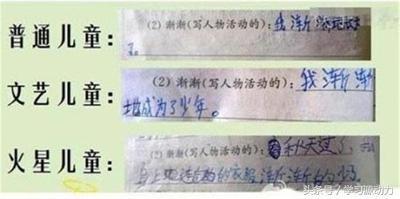 普通儿童：
(2) 渐渐(写人物活动的)：我渐渐
了。
文艺儿童：
(2) 渐渐(写人物活动的)：我渐渐
地成为了少年。
火星儿童：
(2) 渐渐(写人物活动的)：秋天到了，
身上 的衣服渐渐的
头条号／学习原动力